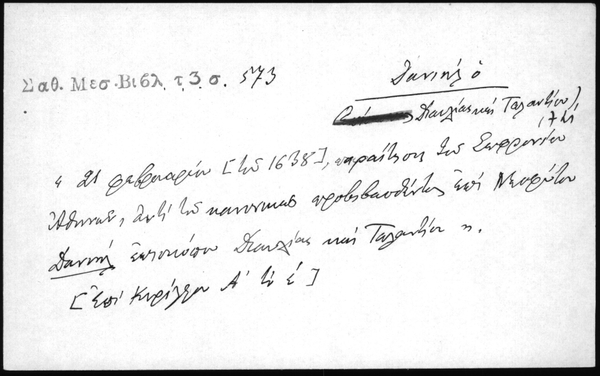 Σαθ. Μεσ. Βιβλ. τ. 3 σ. 573
Δανιήλ ὁ
Δαυλίας καὶ Ταλαντίου
« 21 φεβρουαρίου [τοῦ 1638], παραίτησις τοῦ Σωφρονίου
Ἀθηνῶν, ἀντὶ τοῦ κανονικῶς προβιβασθέντος ἐπὶ
Δανιήλ ἐπισκόπου Δαυλίας καὶ Ταλαντίου ».
[Ἐπὶ Κυρίλλου Α' τὸ έ]